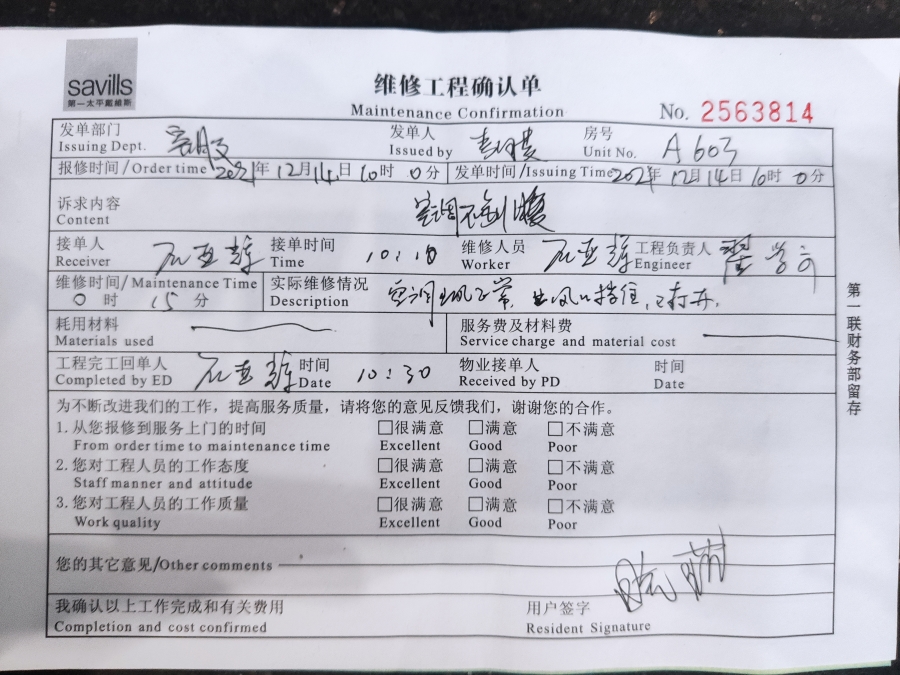 savills
第一太平戴维斯
维修工程确认单
Maintenance Confirmation
No. 2563814
发单部门 客服 发单人 房号 A603
Issuing Dept. Issued by Unit No.
报修时间/Order time 2021年12月14日10时0分 发单时间/Issuing Time 2021年12月14日10时0分
诉求内容 空调不制暖
Content
接单人 石亚辉 接单时间 10:10 维修人员 石亚辉 工程负责人
Receiver Time Worker Engineer
维修时间/Maintenance Time 实际维修情况 空调出风正常,出风口挡住,已打开。
0时15分 Description
耗用材料 服务费及材料费
Materials used Service charge and material cost
工程完工回单人 石亚辉 时间 10:30 物业接单人 时间
Completed by ED Date Received by PD Date
为不断改进我们的工作,提高服务质量,请将您的意见反馈我们,谢谢您的合作。
1.从您报修到服务上门的时间 □很满意 □满意 □不满意
From order time to maintenance time Excellent Good Poor
2.您对工程人员的工作态度 □很满意 □满意 □不满意
Staff manner and attitude Excellent Good Poor
3.您对工程人员的工作质量 □很满意 □满意 □不满意
Work quality Excellent Good Poor
您的其它意见/Other comments
我确认以上工作完成和有关费用 用户签字
Completion and cost confirmed Resident Signature
第一联财务部留存